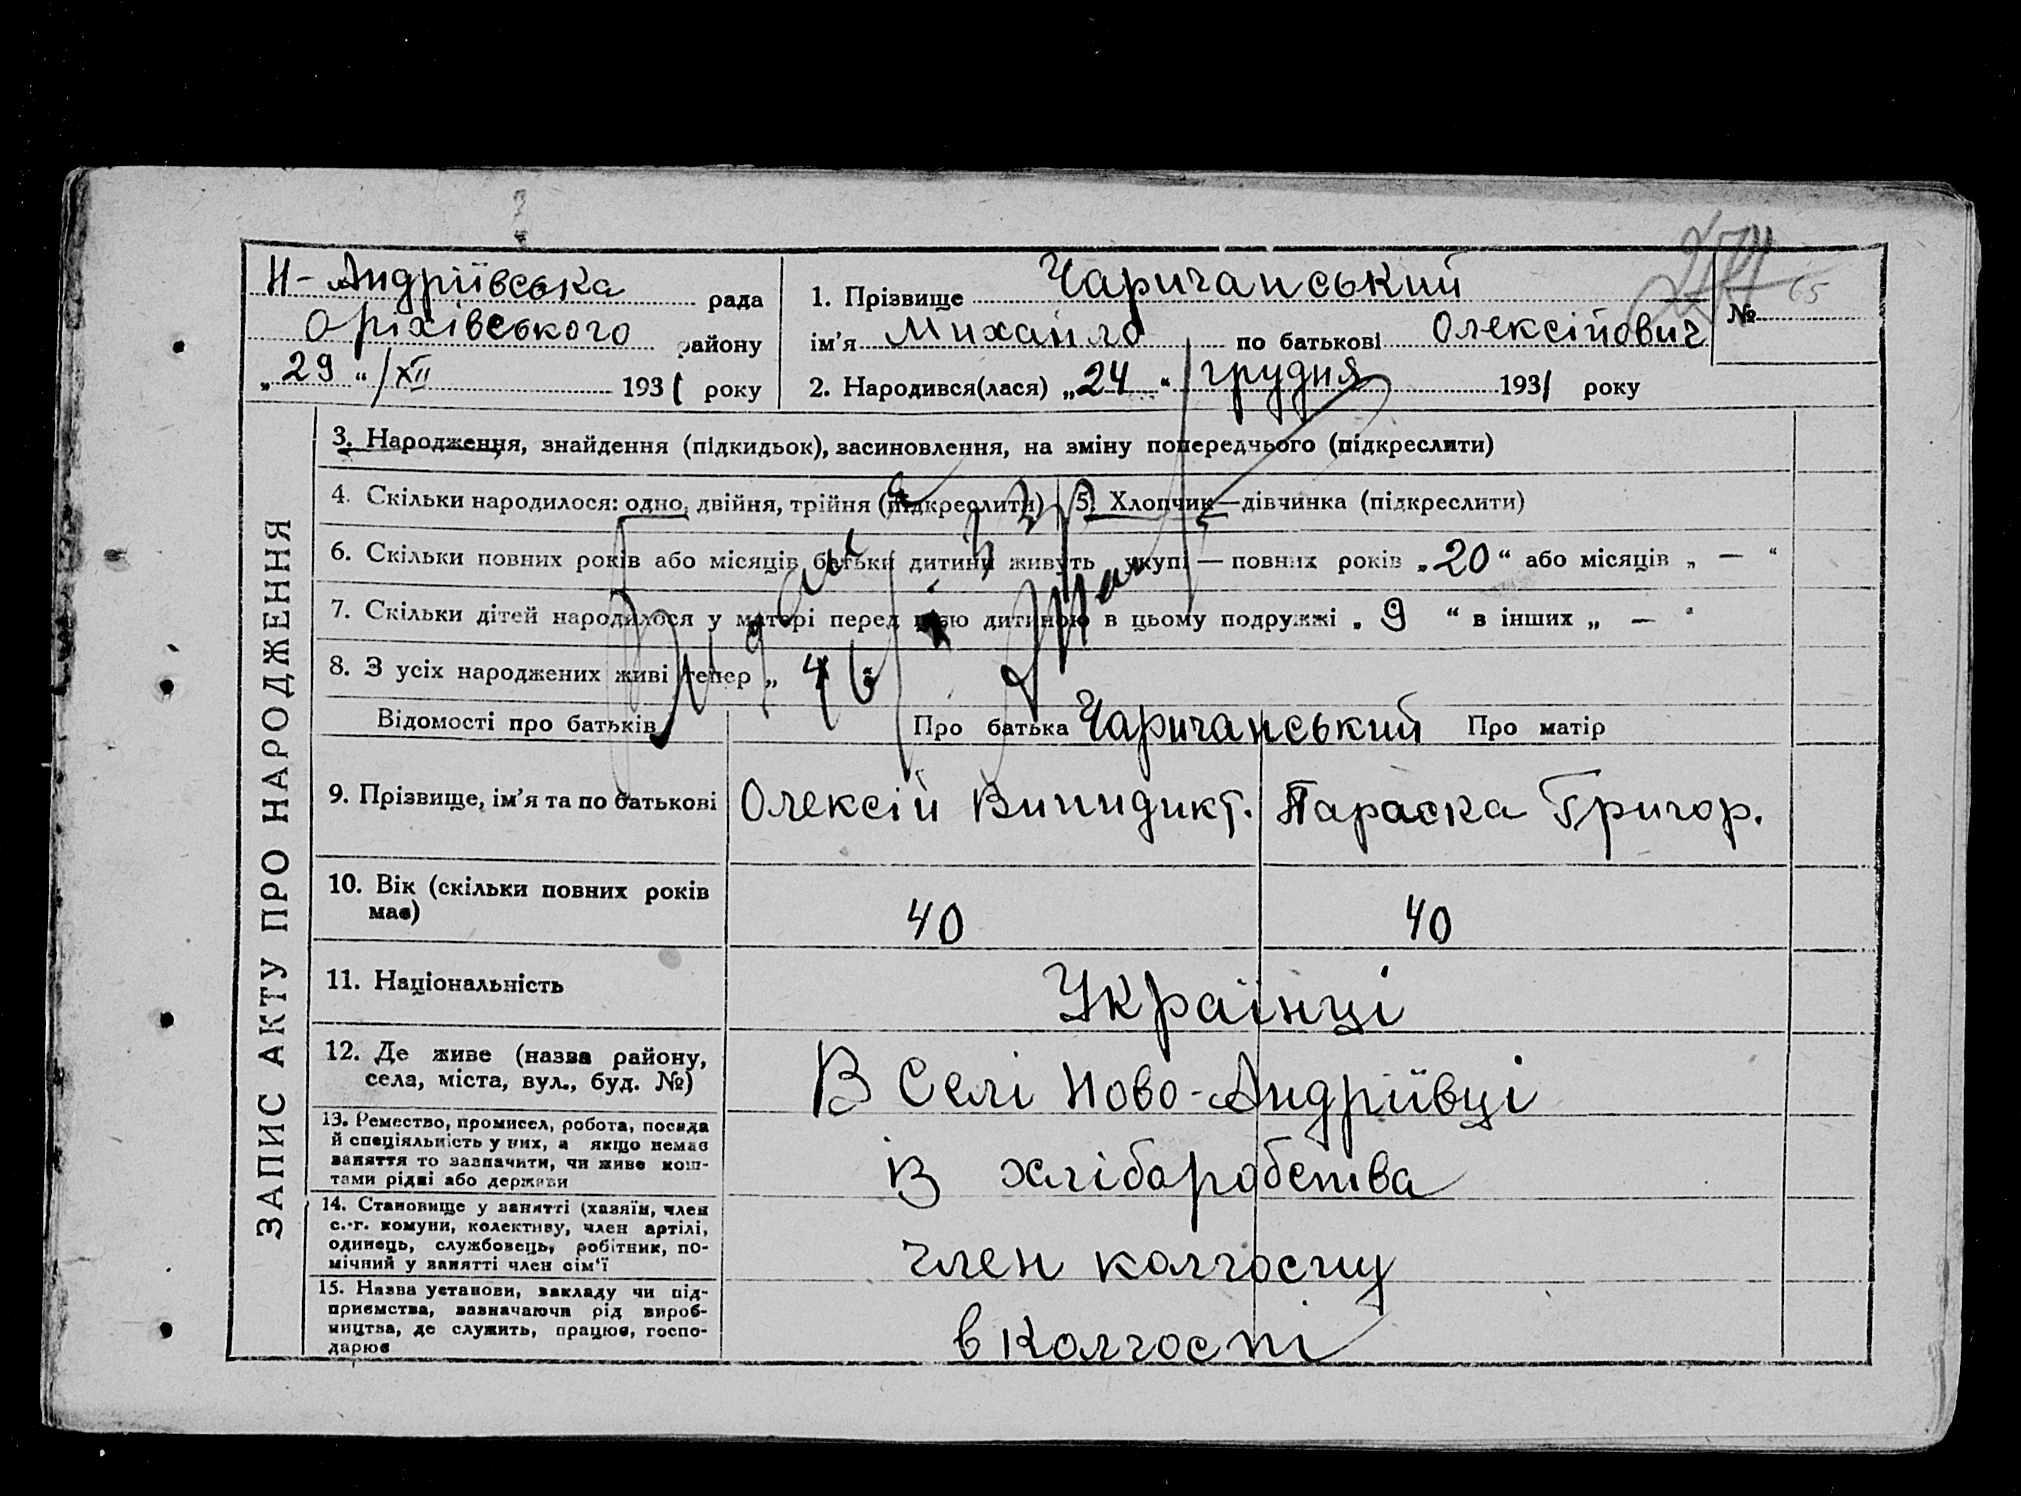 Н-Андріївська рада
Оріхівського району
„29“/XII 1931 року
1. Прізвище Чаричанський
ім'я Михайло по батькові Олексійович
2. Народився(лася) „24“ грудня 1931 року
№ 65
ЗАПИС АКТУ ПРО НАРОДЖЕННЯ
3. Народження, знайдення (підкидьок), засиновлення, на зміну попереднього (підкреслити)
4. Скільки народилося: одно, двійня, трійня (підкреслити) 5. Хлопчик—дівчинка (підкреслити)
6. Скільки повних років або місяців батьки дитини живуть укупі — повних років „20“ або місяців „—“
7. Скільки дітей народилося у матері перед цією дитиною в цьому подружжі „9“ в інших „—“
8. З усіх народжених живі тепер „
Відомості про батьків Про батька Чаричанський Про матір
9. Прізвище, ім'я та по батькові Олексій Виндикт. Параска Григор.
10. Вік (скільки повних років має) 40 40
11. Національність Українці
12. Де живе (назва району, села, міста, вул., буд. №) В Селі Ново-Андріївці
13. Ремество, промисел, робота, посада
й спеціяльність у них, а якщо немає
заняття то зазначити, чи живе кош-
тами рідні або держави
В хліборобства
14. Становище у занятті (хазяїн, член
с.-г. комуни, колективу, член артілі,
одинець, службовець, робітник, по-
мічний у занятті член сім'ї
член колгоспу
15. Назва установи, закладу чи під-
приємства, зазначаючи рід вироб-
ництва, де служить, працює, госпо-
дарює
в Колгоспі